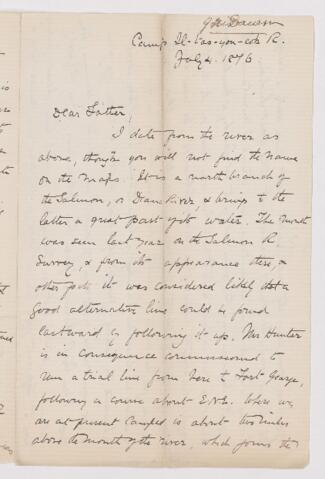 G M Dawson
Camp Il-tas-you-co R.
July 4. 1876
Dear Father,
I date from the river as
above, though you will not find the name
on the maps. It is a north branch of
the Salmon, or Dean River & brings to the
latter a great part of its water. The mouth
was seen last year on the Salmon R.
Survey, & from its appearance there, &
other it was considered likely that a
Good alternative line could be found
eastward by following it up. Mr Hunter
is in consequence commissioned to
run a trial line from here to Fort George,
following a course about E.N.E. Where we
are at present camped is about two miles
above the mouth of the river, which forms the